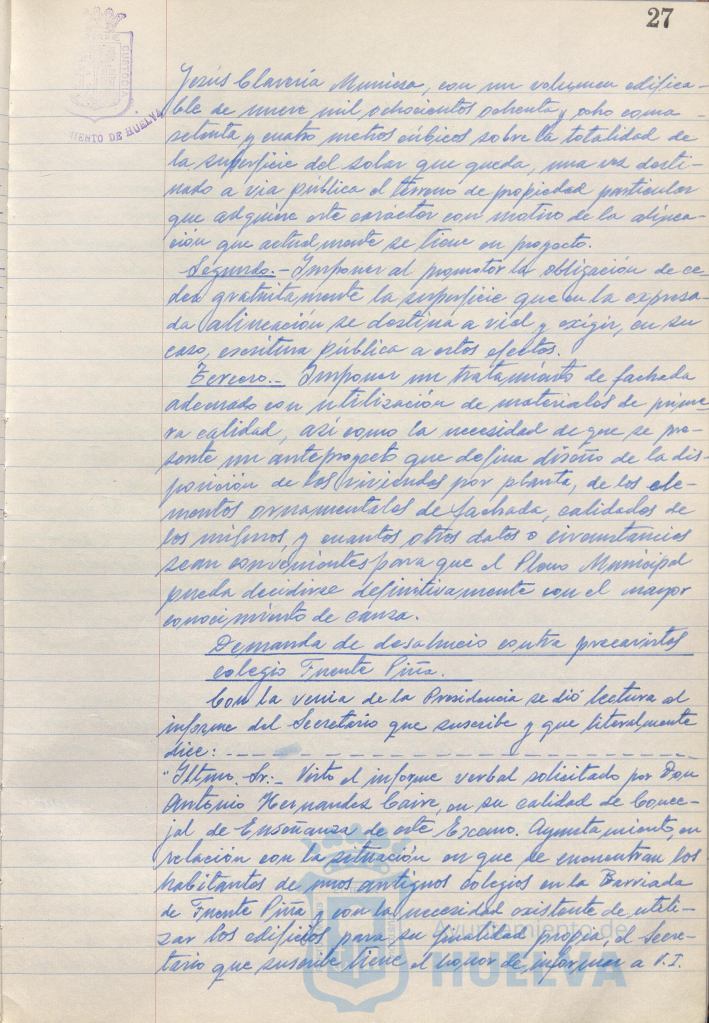 27
HUELVA
MIENTO DE HUELVA
Jesús Clavería Muniesa, con un volumen edifica-
ble de nueve mil ochocientos ochenta y ocho coma
setenta y cuatro metros cúbicos sobre la totalidad de
la superficie del solar que queda, una vez desti-
nado a via pública el terreno de propiedad particular
que adquiere este carácter con motivo de la alinea-
ción que actualmente se tiene en proyecto.
Segundo.- Imponer al promotor la obligación de ce-
der gratuitamente la superficie que en la expresa-
da alineación se destina a vial y exigir, en su
caso, escritura pública a estos efectos.
Tercero.- Imponer un tratamiento de fachada
adecuado con utilización de materiales de prime-
ra calidad, así como la necesidad de que se pre-
sente un anteproyecto que defina diseño de la dis-
posición de las viviendas por planta, de los ele-
mentos ornamentales de fachada, calidades de
los mismos, y cuantos otros datos o circunstancias
sean convenientes para que el Pleno Municipal
pueda decidirse definitivamente con el mayor
conocimiento de causa.
Demanda de desahucio contra precaristas
colegio Fuente Piña.
Con la venia de la Presidencia se dió lectura al
informe del Secretario que suscribe y que literalmente
dice:
"Iltmo. Sr:- Visto el informe verbal solicitado por Don
Antonio Hernandez Caire, en su calidad de Conce-
jal de Enseñanza de este Excmo. Ayuntamiento, en
relación con la situación en que se encuentran los
habitantes de unos antiguos colegios en la Barriada
de Fuente Piña y con la necesidad existente de utili-
zar los edificios para su finalidad propia, el Secre-
tario que suscribe tiene el honor de informar a V.I.
Ayuntamiento de
HUELVA